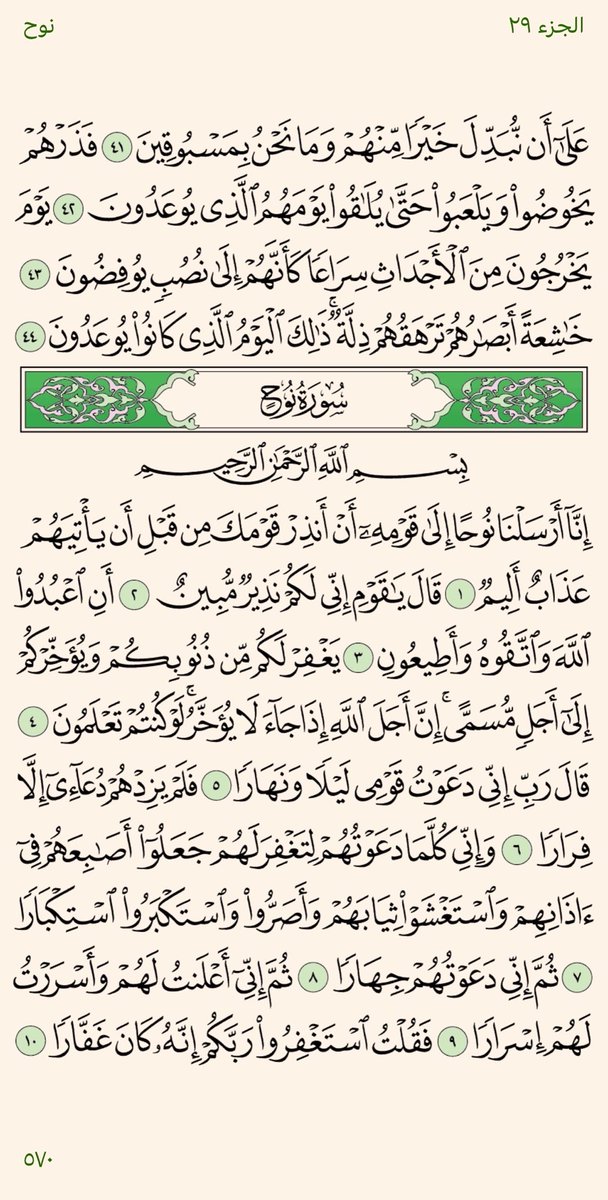 الجزء ٢٩
نوح
عَلَىٰٓ أَن نُّبَدِّلَ خَيْرٗا مِّنْهُمْ وَمَا نَحْنُ بِمَسْبُوقِينَ ٤١ فَذَرْهُمْ
يَخُوضُواْ وَيَلْعَبُواْ حَتَّىٰ يُلَٰقُواْ يَوْمَهُمُ ٱلَّذِي يُوعَدُونَ ٤٢ يَوْمَ
يَخْرُجُونَ مِنَ ٱلْأَجْدَاثِ سِرَاعٗا كَأَنَّهُمْ إِلَىٰ نُصُبٖ يُوفِضُونَ ٤٣
خَٰشِعَةً أَبْصَٰرُهُمْ تَرْهَقُهُمْ ذِلَّةٞۚ ذَٰلِكَ ٱلْيَوْمُ ٱلَّذِي كَانُواْ يُوعَدُونَ ٤٤
سُورَةُ نُوحٍ
بِسْمِ ٱللَّهِ ٱلرَّحْمَٰنِ ٱلرَّحِيمِ
إِنَّآ أَرْسَلْنَا نُوحًا إِلَىٰ قَوْمِهِۦٓ أَنْ أَنذِرْ قَوْمَكَ مِن قَبْلِ أَن يَأْتِيَهُمْ
عَذَابٌ أَلِيمٞ ١ قَالَ يَٰقَوْمِ إِنِّي لَكُمْ نَذِيرٞ مُّبِينٌ ٢ أَنِ ٱعْبُدُواْ
ٱللَّهَ وَٱتَّقُوهُ وَأَطِيعُونِ ٣ يَغْفِرْ لَكُم مِّن ذُنُوبِكُمْ وَيُؤَخِّرْكُمْ
إِلَىٰٓ أَجَلٖ مُّسَمًّىۚ إِنَّ أَجَلَ ٱللَّهِ إِذَا جَآءَ لَا يُؤَخَّرُۚ لَوْ كُنتُمْ تَعْلَمُونَ ٤
قَالَ رَبِّ إِنِّي دَعَوْتُ قَوْمِي لَيْلٗا وَنَهَارٗا ٥ فَلَمْ يَزِدْهُمْ دُعَآءِيٓ إِلَّا
فِرَارٗا ٦ وَإِنِّي كُلَّمَا دَعَوْتُهُمْ لِتَغْفِرَ لَهُمْ جَعَلُوٓاْ أَصَٰبِعَهُمْ فِيٓ
ءَاذَانِهِمْ وَٱسْتَغْشَوْاْ ثِيَابَهُمْ وَأَصَرُّواْ وَٱسْتَكْبَرُواْ ٱسْتِكْبَارٗا
٧ ثُمَّ إِنِّي دَعَوْتُهُمْ جِهَارٗا ٨ ثُمَّ إِنِّيٓ أَعْلَنتُ لَهُمْ وَأَسْرَرْتُ
لَهُمْ إِسْرَارٗا ٩ فَقُلْتُ ٱسْتَغْفِرُواْ رَبَّكُمْ إِنَّهُۥ كَانَ غَفَّارٗا ١٠
٥٧٠